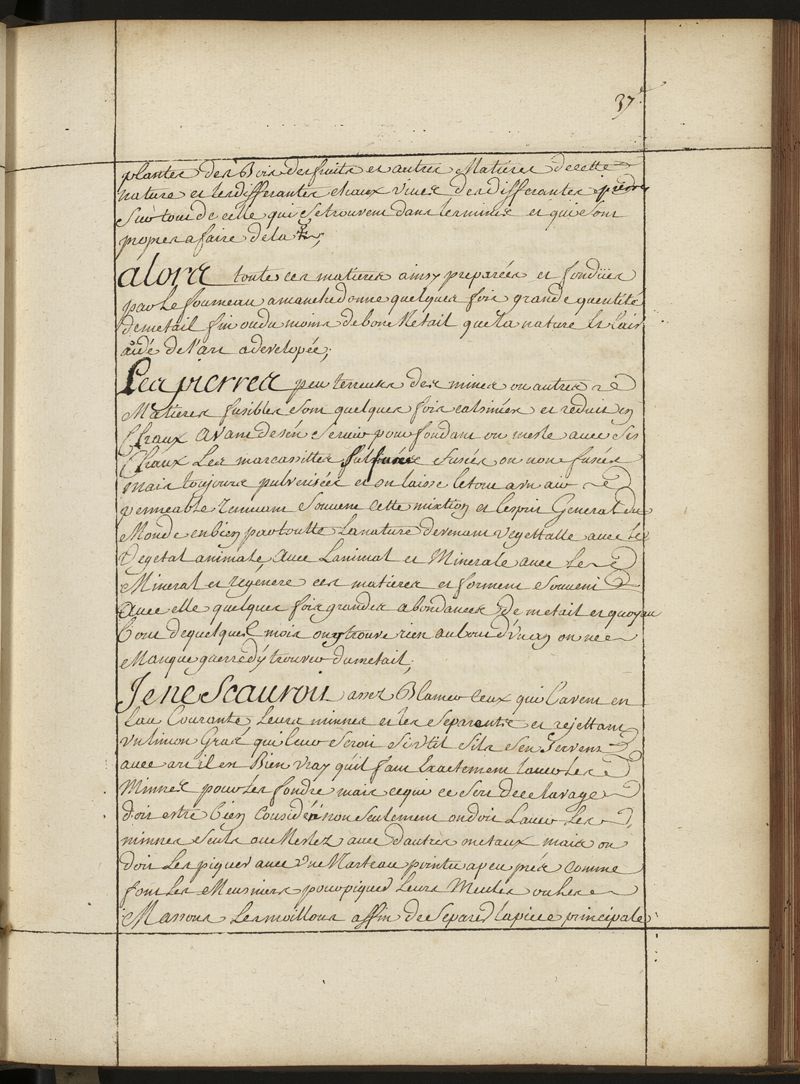 37.
plantes des Bois des fruits et autres Matieres de cette
nature et les differantes chaux vives des differantes pierres
Sur tout de celle qui se trouvent dans les minie et qui sont
propres a faire de la
alors toutes ces matieres ainsy preparées et fondües
par le fourneau a manche donne quelques fois grande quentité
de metail fin ou du moins de bone Metail que la nature et l'air
aidé de l'art a developée;
Les pierres peu terreuses des mines ou autres
Matieres fusibles sont quelques fois calsinées et reduit en
Chaux avant de s'en servir pour fondant on mesle avec ses
Chaux Les marcassittes sulfurée fusés ou non fusés
mais toujours pulverisées et on laisse le tout a un air
permeable remuant souvent cette mixtion et l'esprit General du
Monde en bien par toutte La nature devenant vegettalle avec le
Vegetal animale avec L'animal et Minerale avec le
Mineral et regénere ces matieres et forment souvent
avec elle quelques fois grandes abondances De metail et quoy au
bout de quelques mois on y trouve rien au bout d'un an on ne
Manque guerre d'y trouver du metail;
Je ne Scaurois assez Blamer Ceux qui lavent en
L'au Courante Leurs minnes et les separantes et rejettant
un limon Gras qui leur seroit si util s'ils s'en servent
avec art il en Bien vray qu'il faut Exactement laver les
Minnes pour les fondre mais ce qui ce sort de ce lavage
doit estre bien Considéré non seulement on doit Laver les
minnes seuls ou Meslez avec d'autres metaux mais on
doit Les piquer avec un Marteau pointu a peu prés comme
font Les Meusniers pour piquer Leurs Meules ou les
Massons Les moillons affin de separer la piece principale